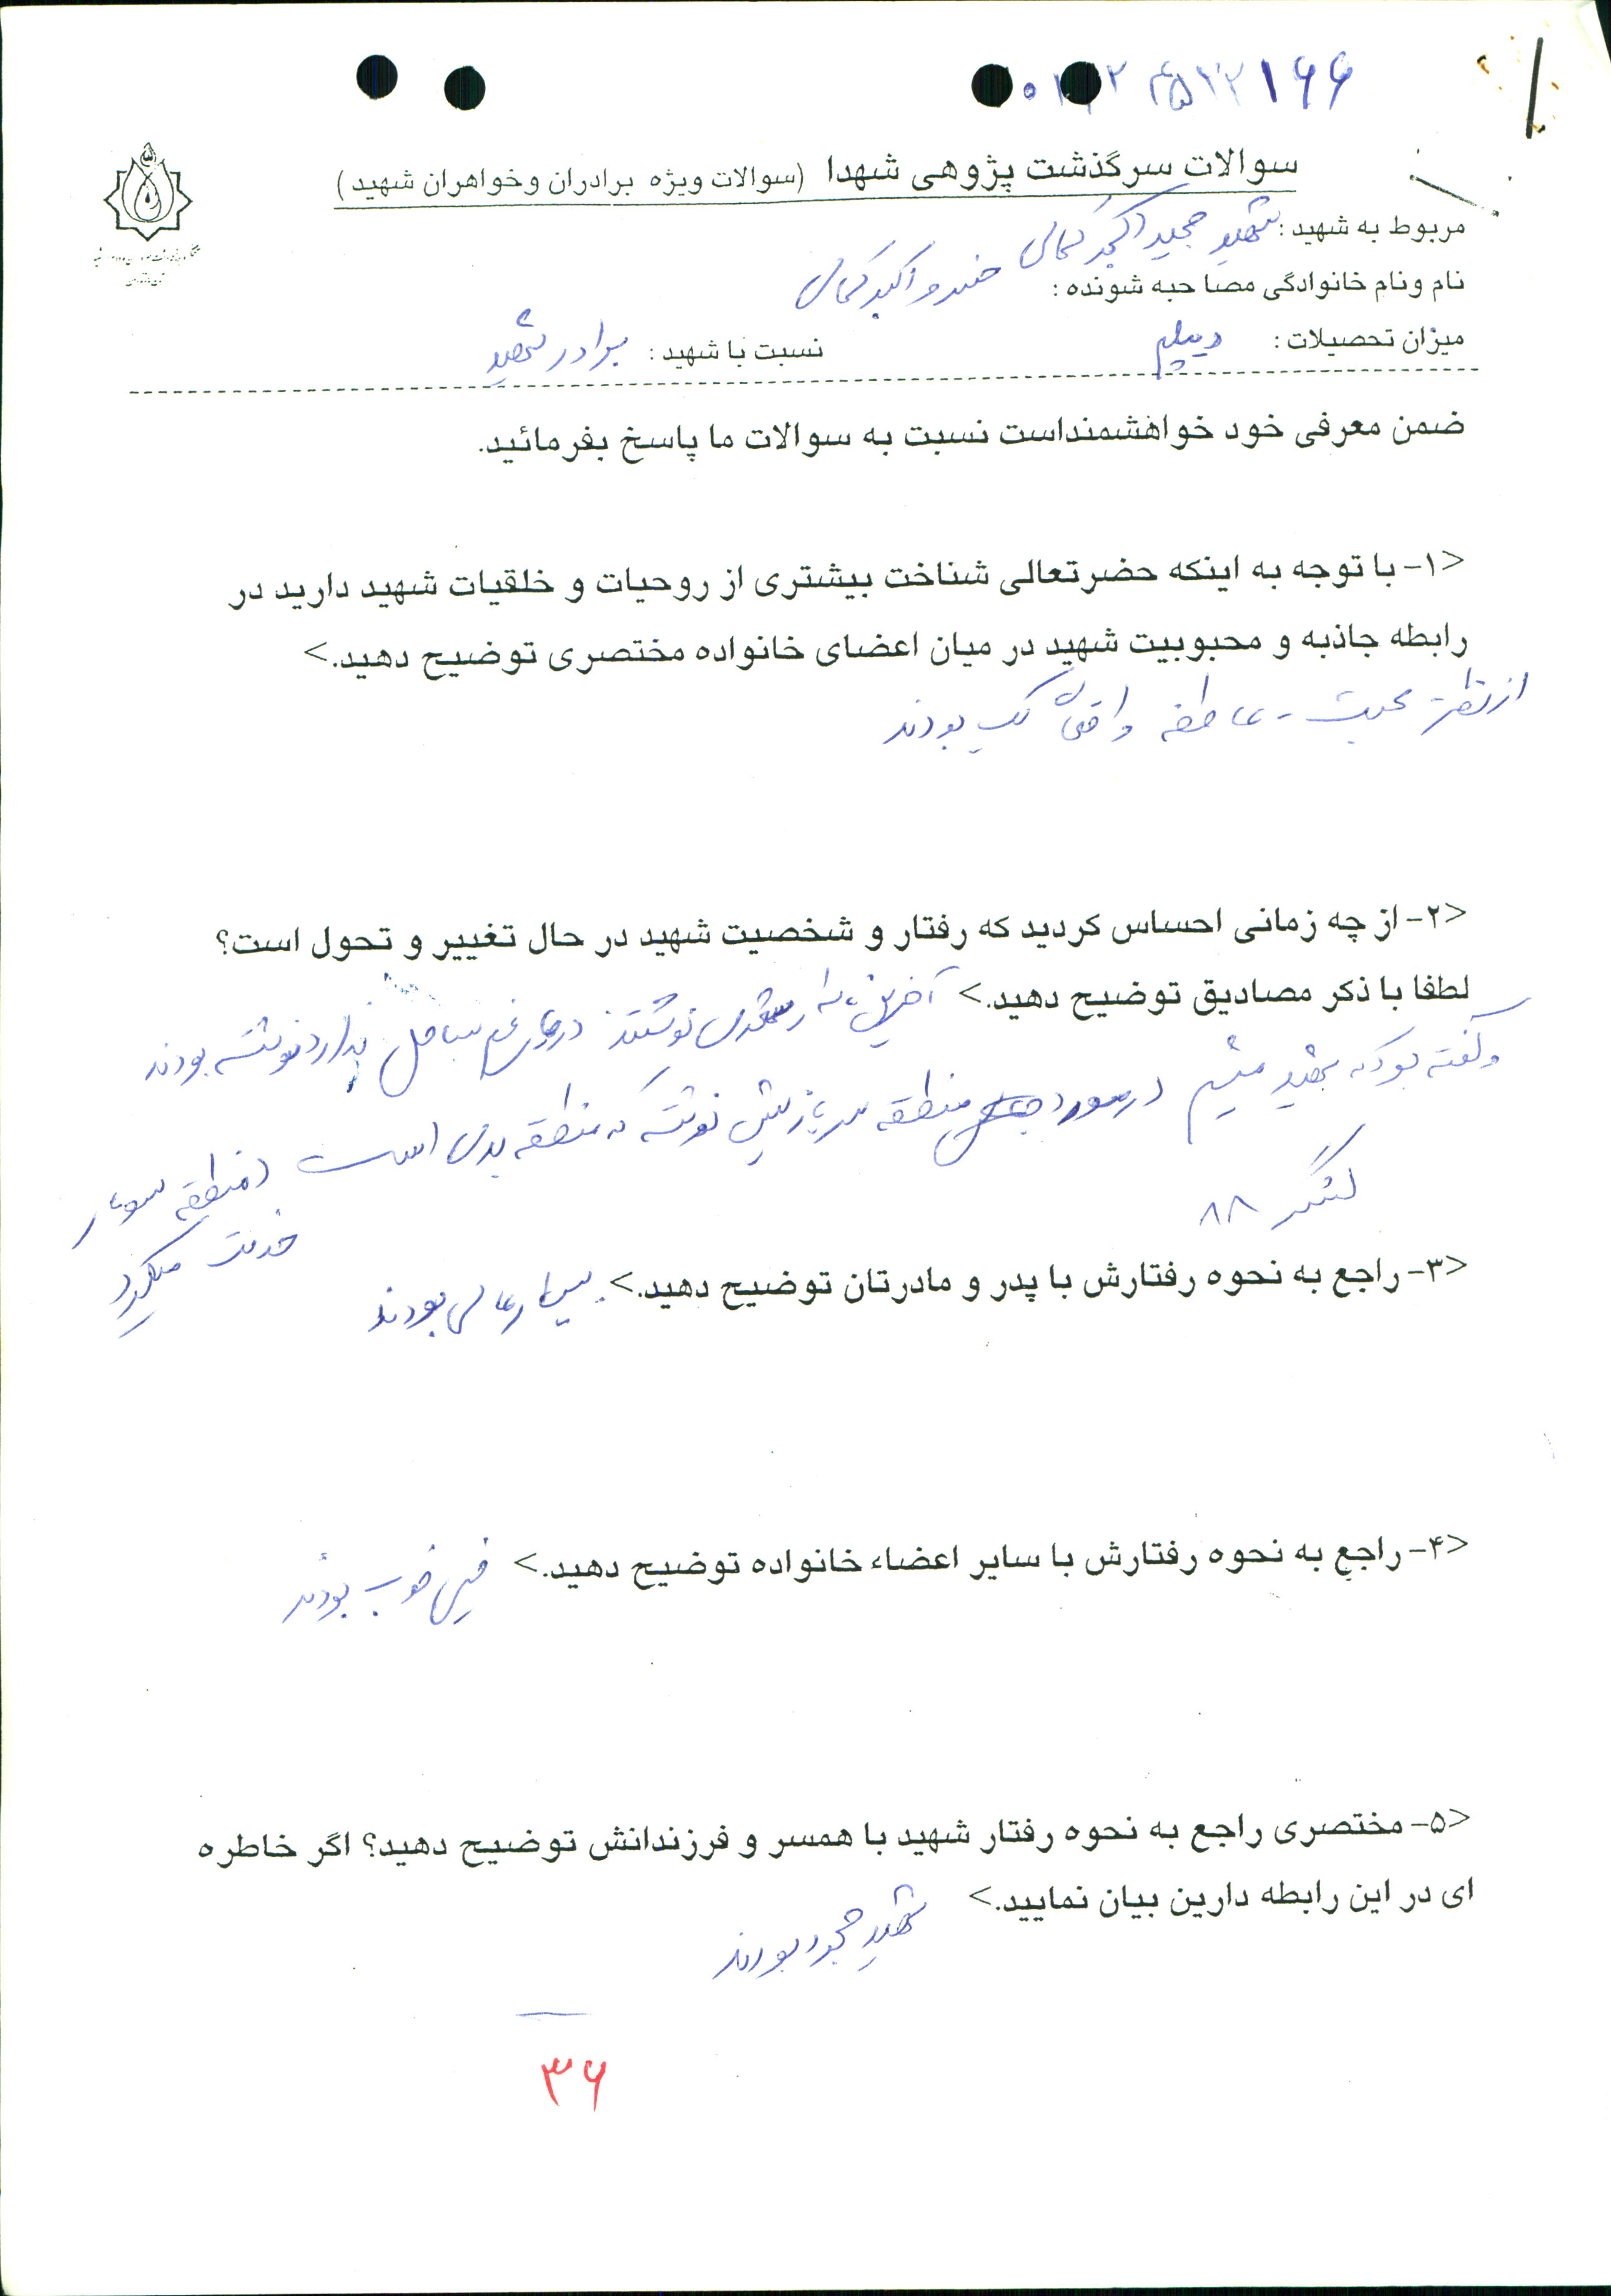 ۱۶۶
سوالات سرگذشت پژوهی شهدا (سوالات ویژه برادران وخواهران شهید)
مربوط به شهید: شهید مجید اکبر کمالی
نام ونام خانوادگی مصاحبه شونده: خسرو اکبر کمالی
میزان تحصیلات: دیپلم نسبت با شهید: برادر شهید
ضمن معرفی خود خواهشمنداست نسبت به سوالات ما پاسخ بفرمائید.
<۱- با توجه به اینکه حضرتعالی شناخت بیشتری از روحیات و خلقیات شهید دارید در
رابطه جاذبه و محبوبیت شهید در میان اعضای خانواده مختصری توضیح دهید.>
از نظر محبت - عاطفه واقعاً تک بودند
<۲- از چه زمانی احساس کردید که رفتار و شخصیت شهید در حال تغییر و تحول است؟
لطفا با ذکر مصادیق توضیح دهید.> آخرین نامه نوشتند دریای غم ساحل ندارد نوشته بودند
و گفته بود که شهید میشم در مورد منطقه سربازیش نوشته که منطقه بدی است (منطقه سومار
لشگر ۸۸
خدمت میکرد)
<۳- راجع به نحوه رفتارش با پدر و مادرتان توضیح دهید.> بسیار عالی بودند
<۴- راجع به نحوه رفتارش با سایر اعضاء خانواده توضیح دهید.> خیلی خوب بودند
<۵- مختصری راجع به نحوه رفتار شهید با همسر و فرزندانش توضیح دهید؟ اگر خاطره
ای در این رابطه دارین بیان نمایید.> شهید مجرد بودند
۳۶